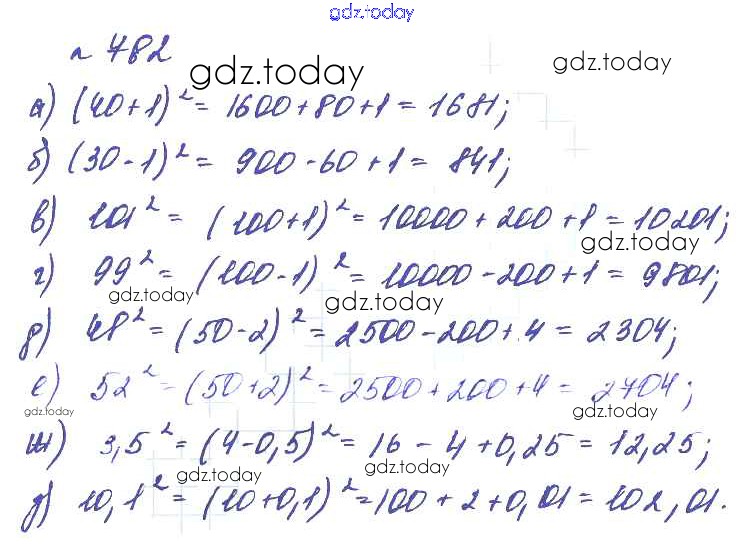 gdz.today
№ 782
gdz.today gdz.today
а) (40+1)² = 1600+80+1 = 1681;
б) (30-1)² = 900-60+1 = 841;
в) 101² = (100+1)² = 10000+200+1 = 10201;
gdz.today
г) 99² = (100-1)² = 10000-200+1 = 9801;
gdz.today gdz.today
д) 48² = (50-2)² = 2500-200+4 = 2304;
е) 52² = (50+2)² = 2500+200+4 = 2704;
gdz.today gdz.today
ж) 3,5² = (4-0,5)² = 16-4+0,25 = 12,25;
gdz.today gdz.today
з) 10,1² = (10+0,1)² = 100+2+0,01 = 102,01.